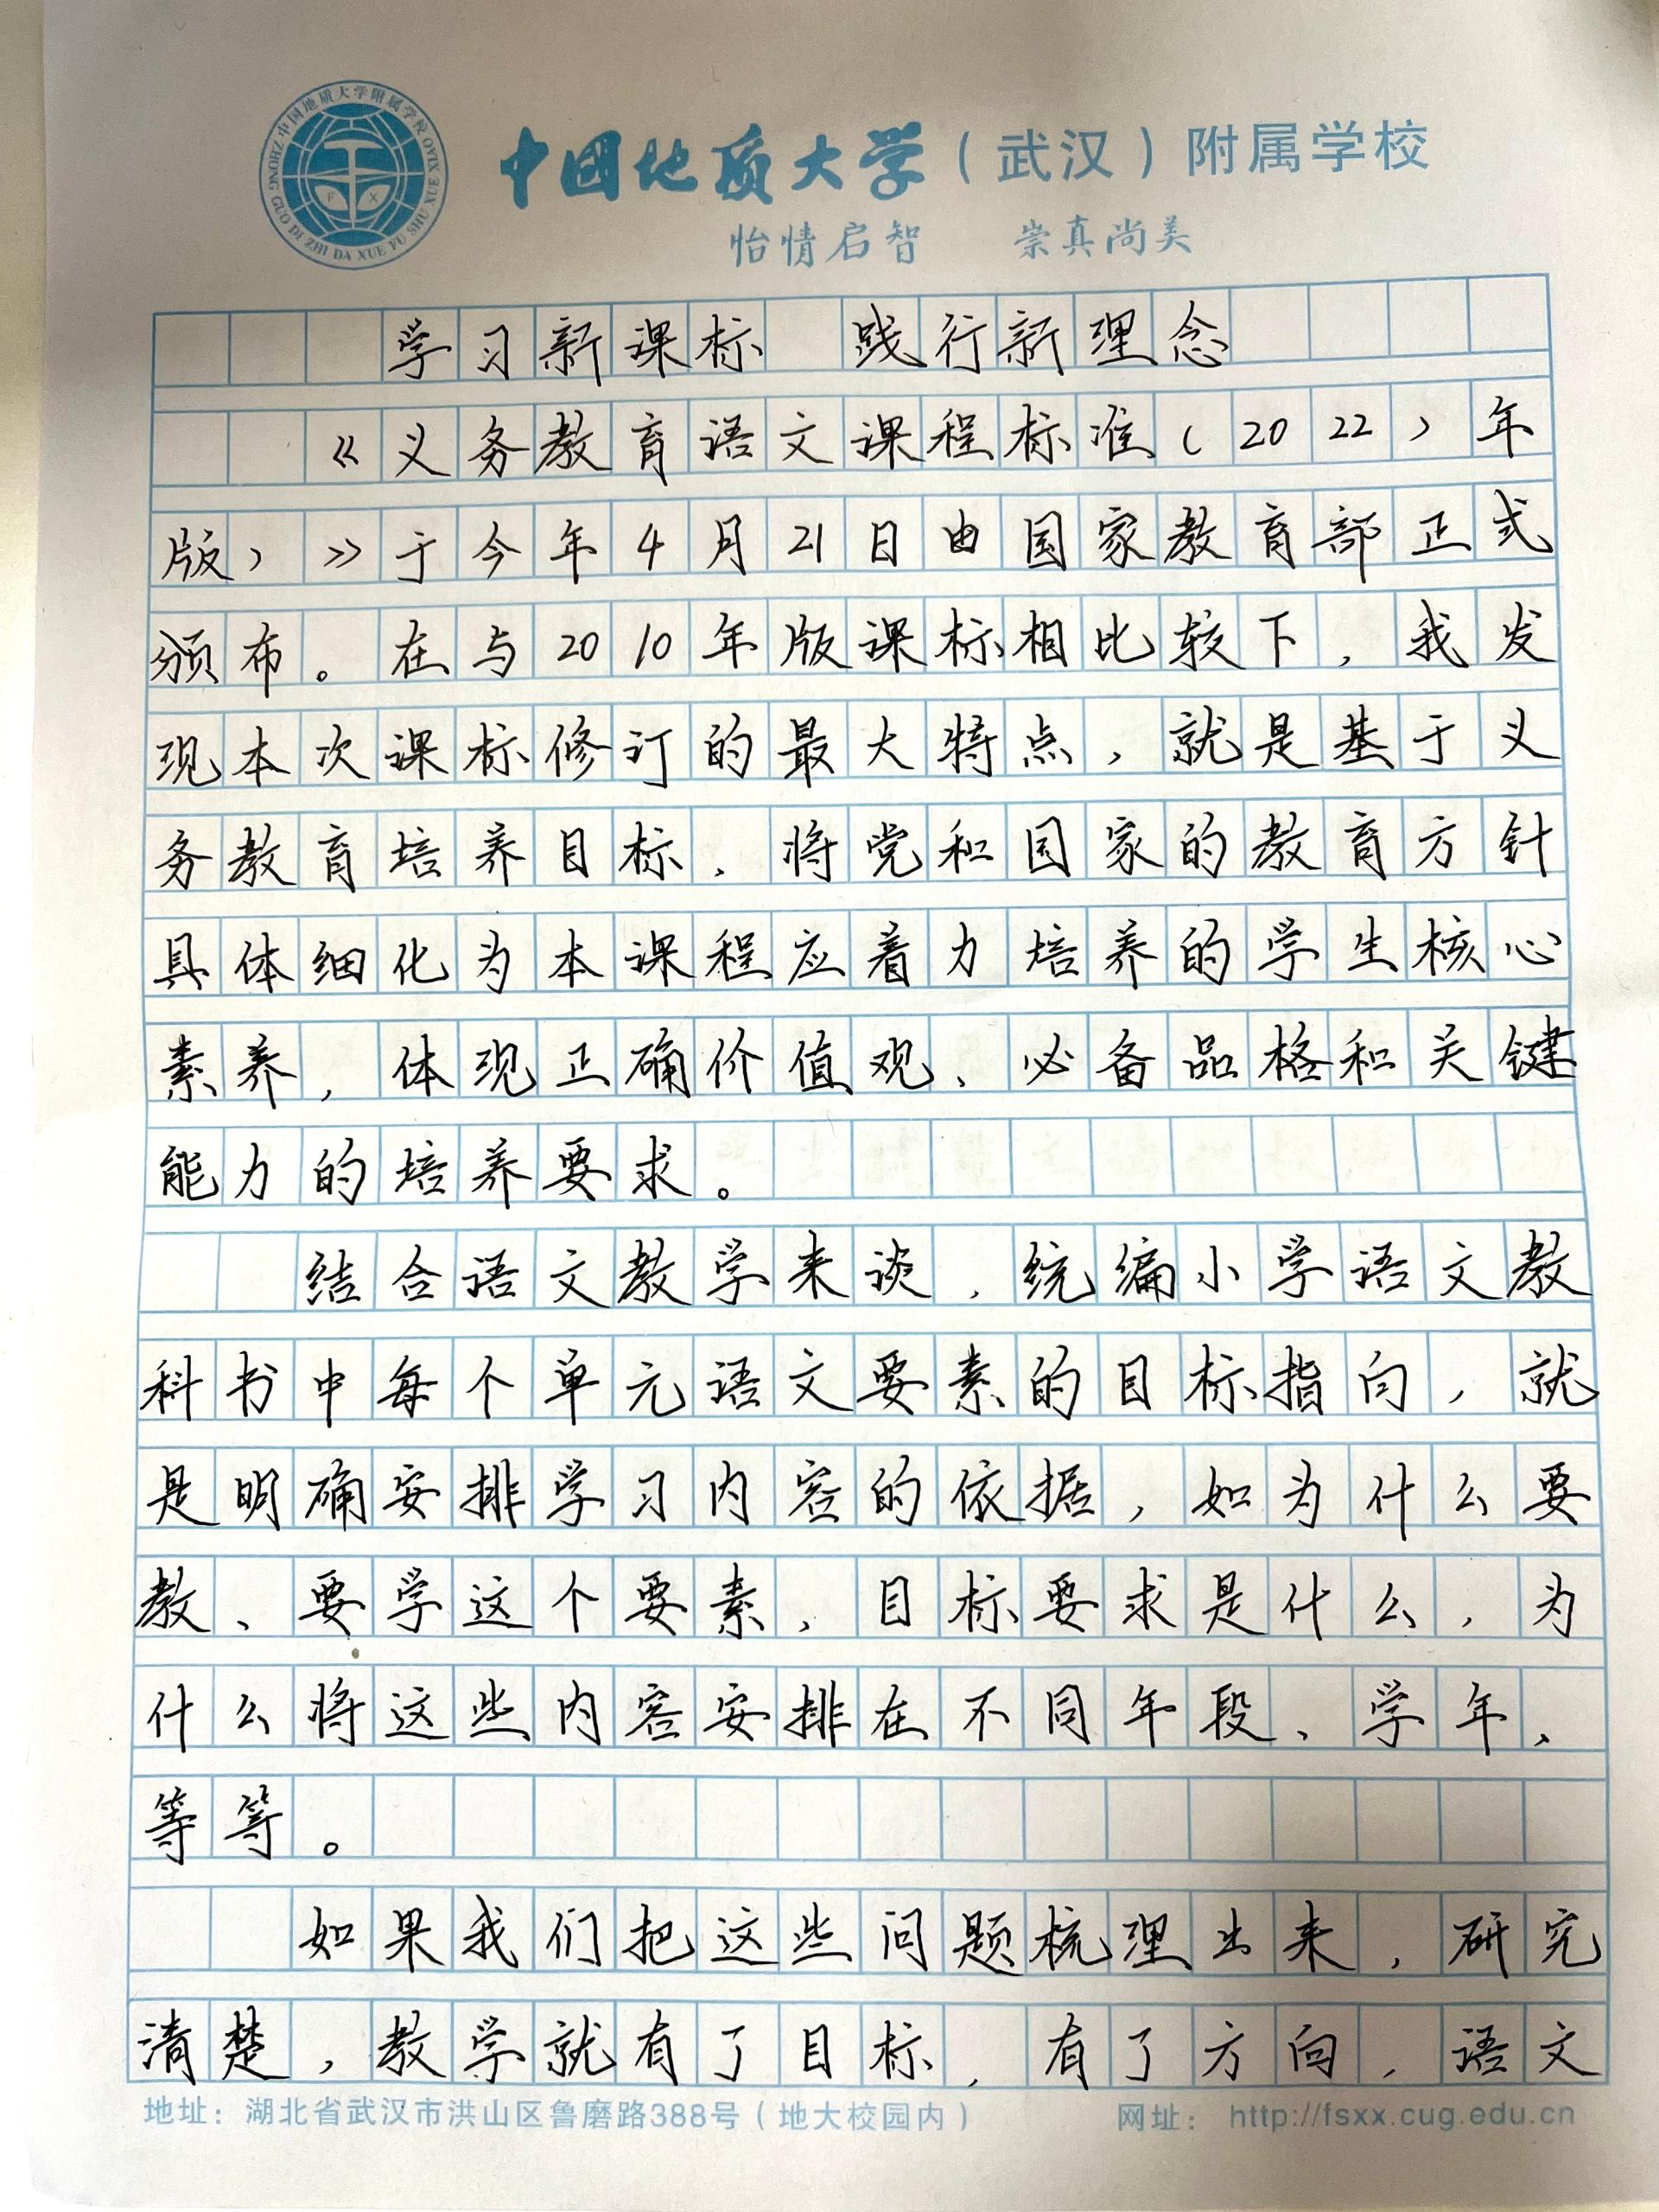 中国地质大学附属学校
ZHONG GUO DI ZHI DA XUE FU SHU XUE XIAO
F X
中国地质大学（武汉）附属学校
怡情启智 崇真尚美
学习新课标 践行新理念
《义务教育语文课程标准（2022）年
版）》于今年4月21日由国家教育部正式
颁布。在与2010年版课标相比较下，我发
现本次课标修订的最大特点，就是基于义
务教育培养目标，将党和国家的教育方针
具体细化为本课程应着力培养的学生核心
素养，体现正确价值观、必备品格和关键
能力的培养要求。
结合语文教学来谈，统编小学语文教
科书中每个单元语文要素的目标指向，就
是明确安排学习内容的依据，如为什么要
教、要学这个要素，目标要求是什么，为
什么将这些内容安排在不同年段、学年、
等等。
如果我们把这些问题梳理出来，研究
清楚，教学就有了目标，有了方向，语文
地址：湖北省武汉市洪山区鲁磨路388号（地大校园内） 网址：http://fsxx.cug.edu.cn